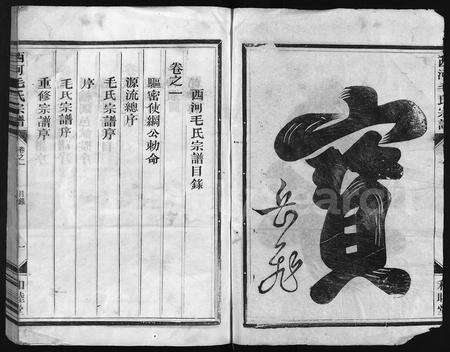 寶
岳飛
西河毛氏宗譜
西河毛氏宗譜目錄
卷之一
驅密使綱公勅命
源流總序
毛氏宗譜序
序
毛氏宗譜序
重修宗譜序
西河毛氏宗譜
卷之一
目錄
一